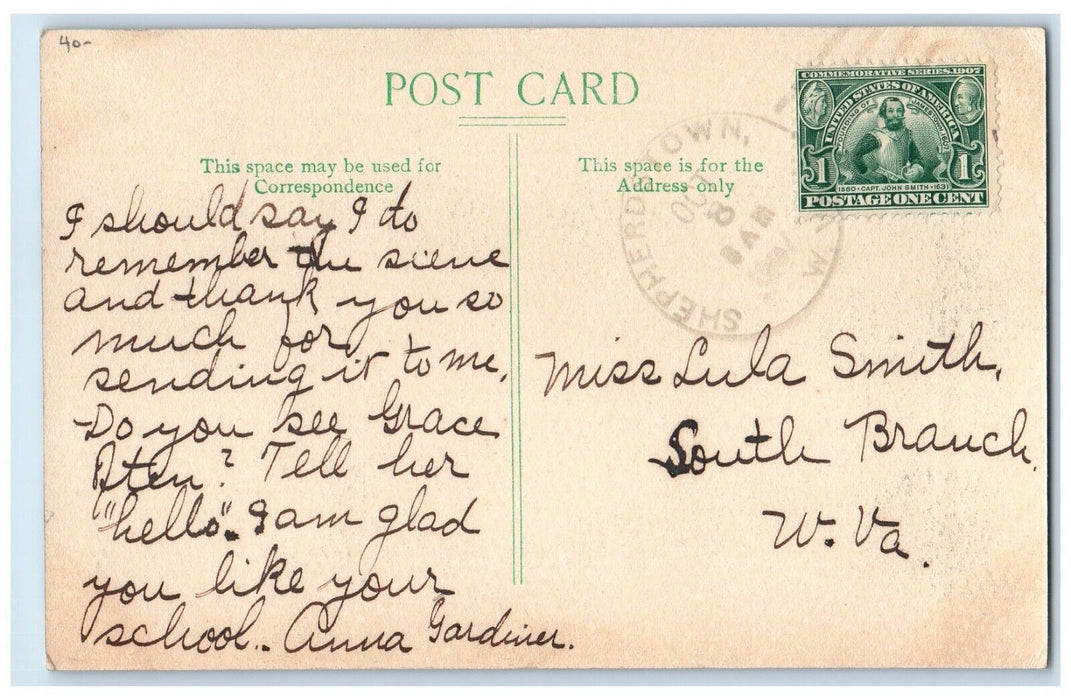 40-
POST CARD
This space may be used for
Correspondence
I should say I do
remember the sciene
and thank you so
much for
sending it to me.
Do you see Grace
Aten? Tell her
"hello". I am glad
you like your
school.. Anna Gardiner.
This space is for the
Address only
COMMEMORATIVE SERIES 1907
UNITED STATES OF AMERICA
FOUNDING OF JAMESTOWN 1607
1 1
1580 · CAPT. JOHN SMITH · 1631
POSTAGE ONE CENT
SHEPHERDSTOWN, W. VA
OCT
8 AM
Miss Lula Smith,
South Branch.
W. Va.